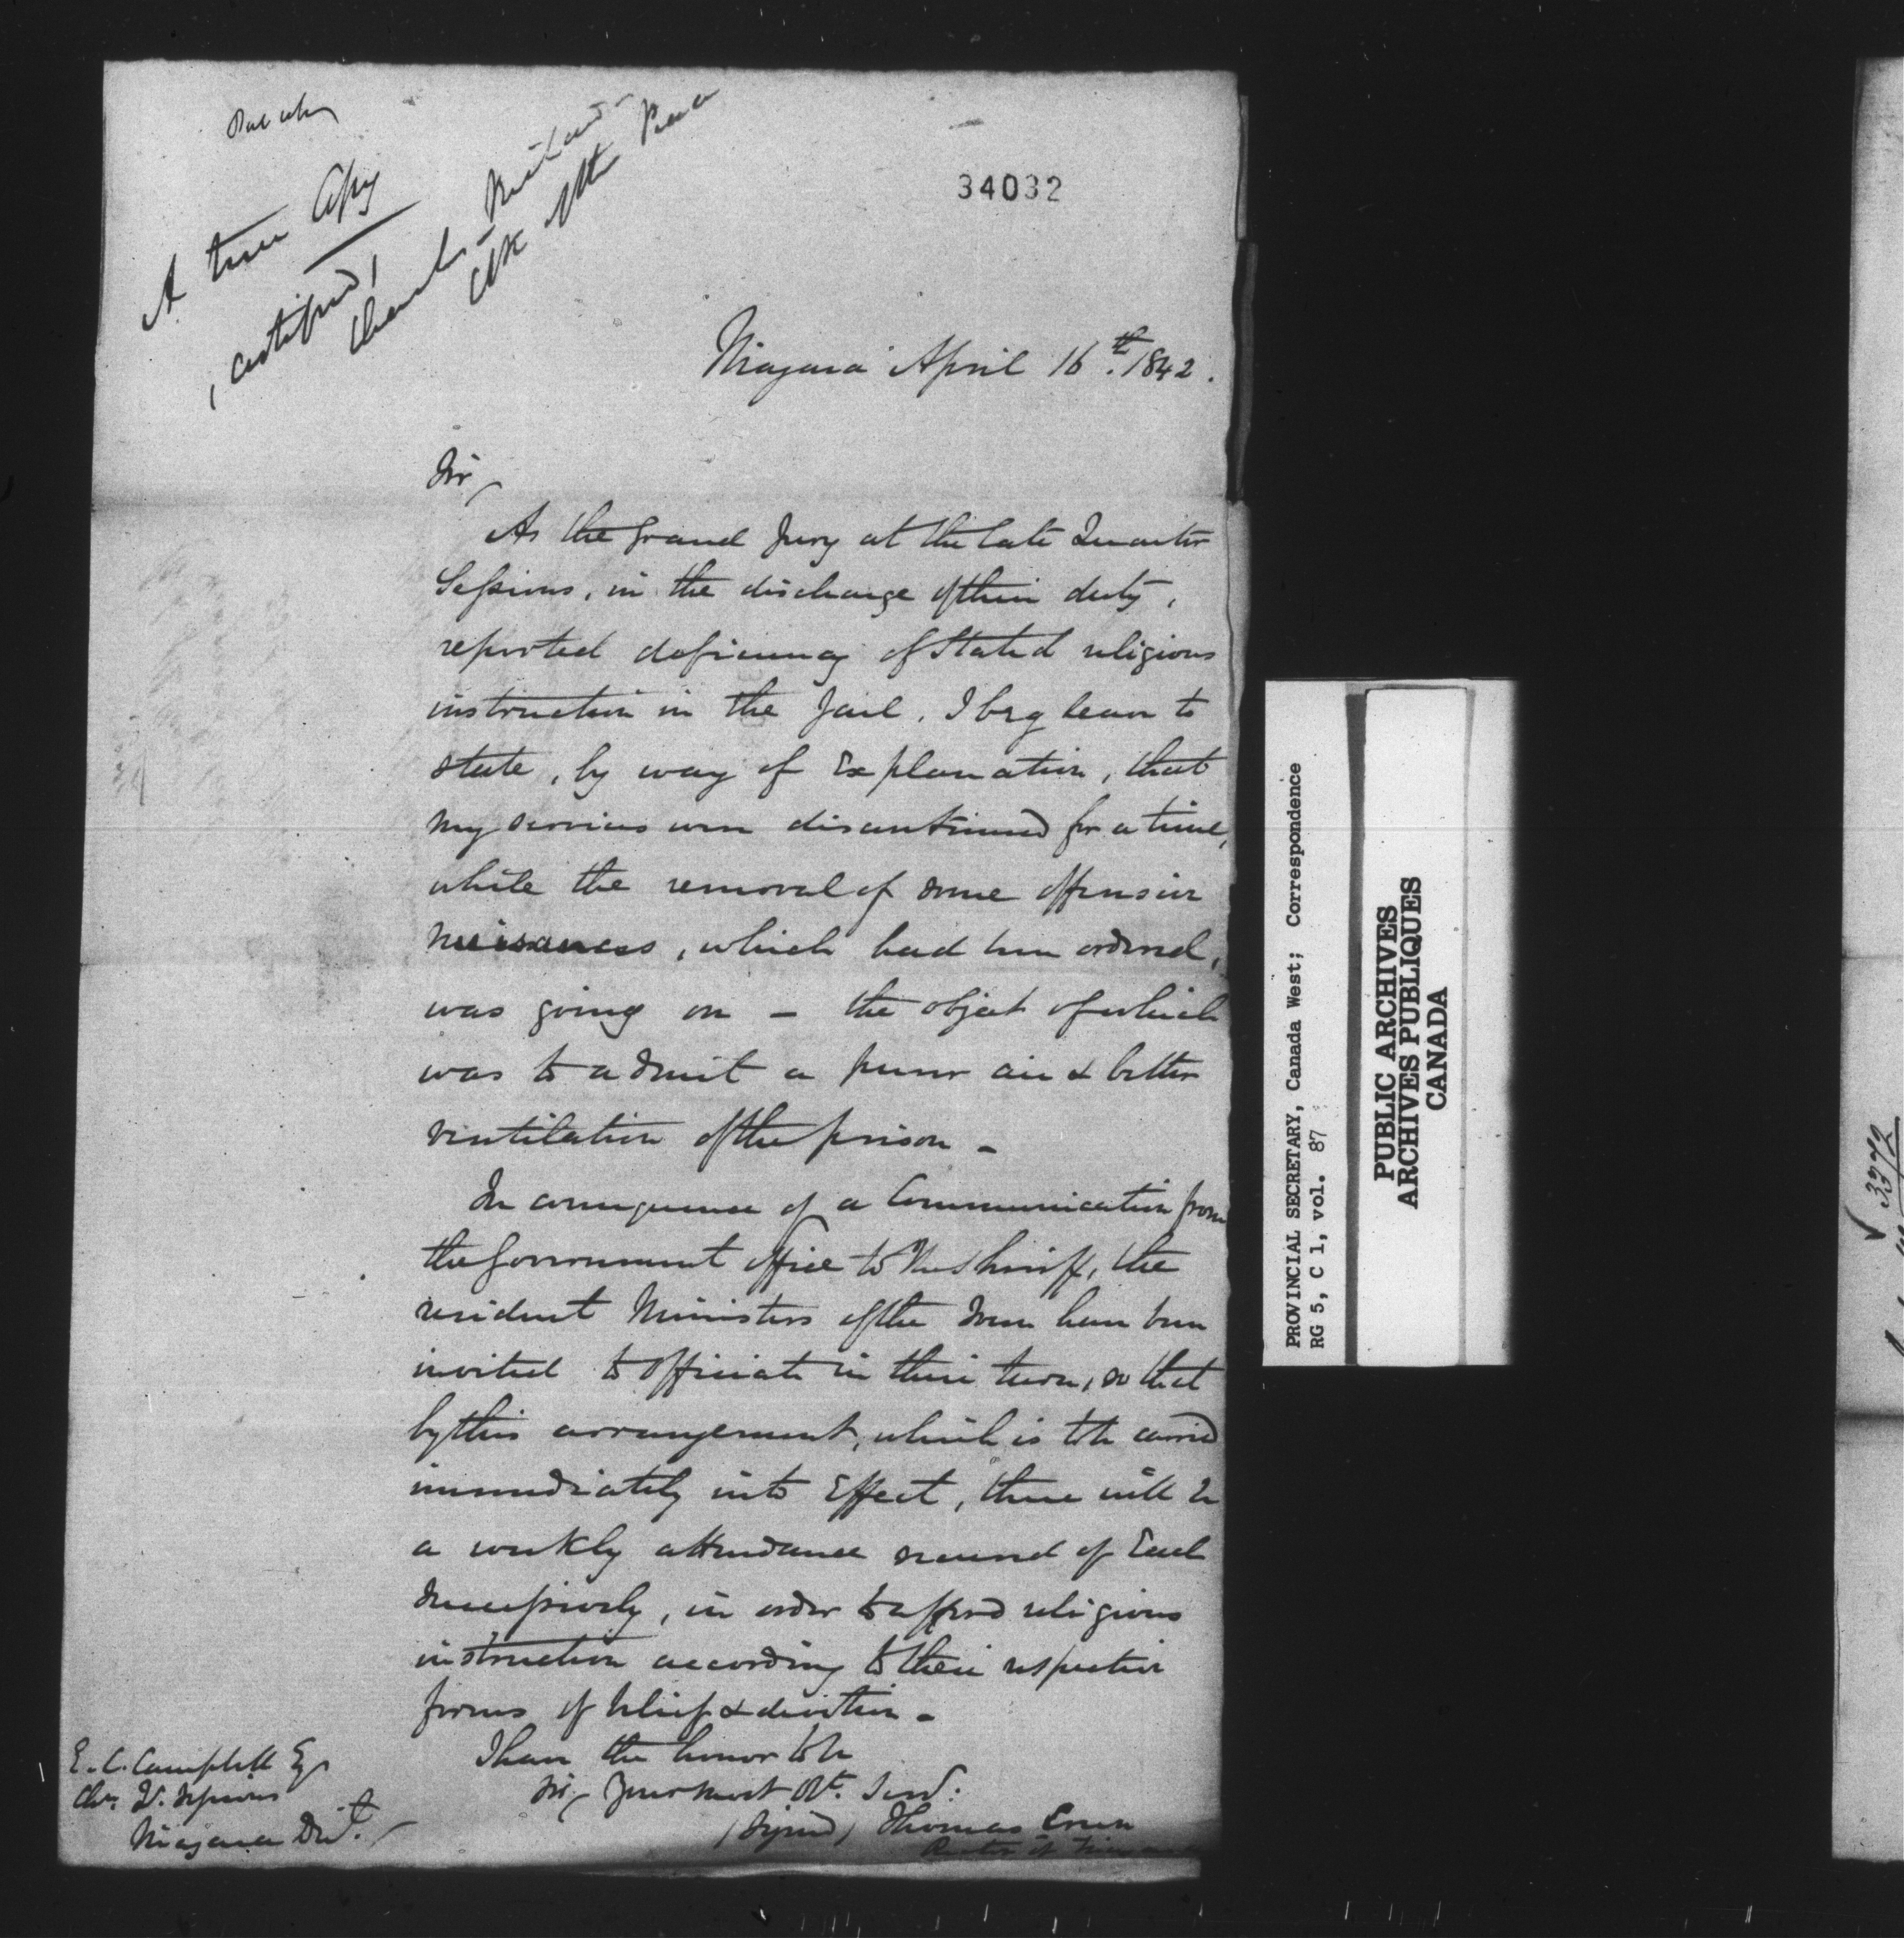 A true Copy
certified,
Charles Richardson
Clk of the Peace
34032
Niagara April 16th. 1842.
Sir,
As the Grand Jury at the late Quarter
Sessions, in the discharge of their duty,
reported deficiency of Stated religious
instruction in the Jail, I beg leave to
state, by way of Explanation, that
my services were discontinued for a time,
while the removal of some offensive
nuisances, which had been ordered,
was going on – the object of which
was to admit a purer air & better
ventilation of the prison –
In consequence of a Communication from
the Government office to the Sheriff, the
resident Ministers of the Town have been
invited to officiate in their turn, so that
by this arrangement, which is to be carried
immediately into Effect, there will be
a weekly attendance secured of Each
successively, in order to afford religious
instruction according to their respective
forms of belief & devotion –
I have the honor to be
Sir, Your most Obt. Servt.
(Signed) Thomas Creen
Rector of Niagara
E. C. Campbell Esqr
Chn. Q. Sessions
Niagara Dist.
PROVINCIAL SECRETARY, Canada West; Correspondence
RG 5, C 1, vol. 87
PUBLIC ARCHIVES
ARCHIVES PUBLIQUES
CANADA
3372